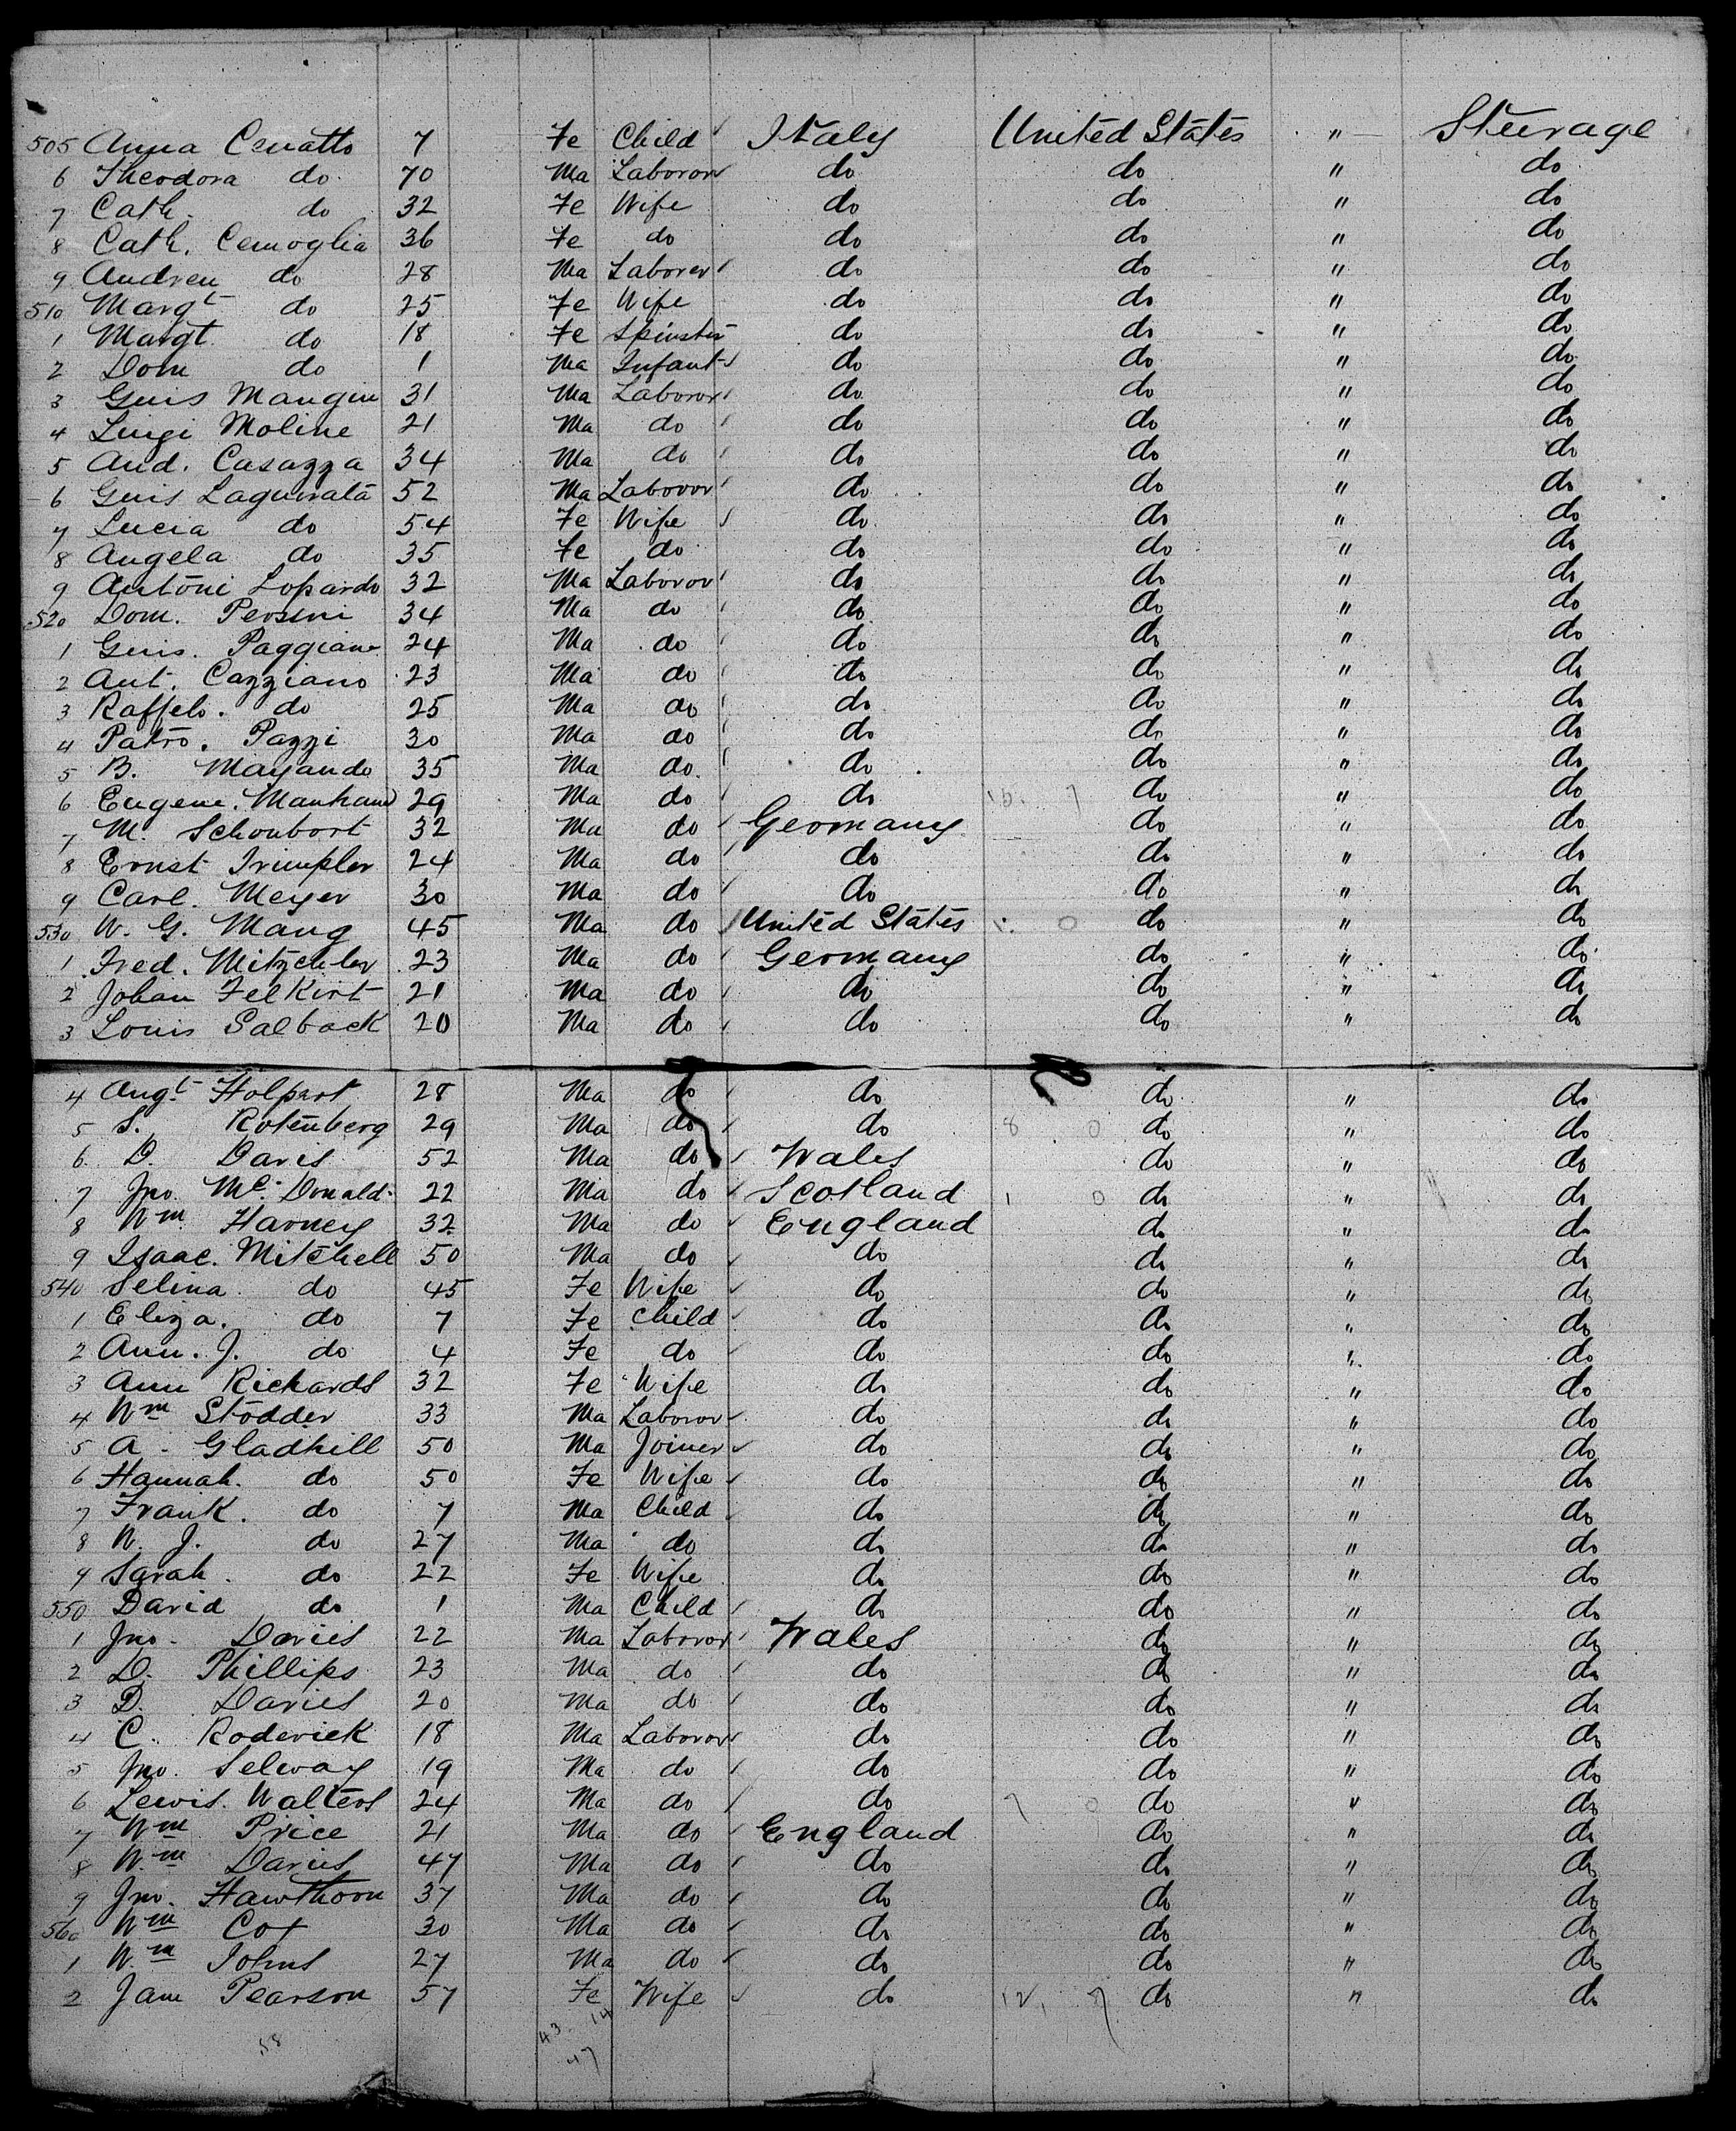 505 Anna Cenatto 7 Fe Child Italy United States " Steerage
6 Theodora do 70 Ma Laborer do do " do
7 Cath. do 32 Fe Wife do do " do
8 Cath. Cemoglia 36 Fe do do do " do
9 Andrew do 28 Ma Laborer do do " do
510 Margt do 25 Fe Wife do do " do
1 Margt. do 18 Fe Spinster do do " do
2 Dom do 1 Ma Infant do do " do
3 Guis Mangin 31 Ma Laborer do do " do
4 Luigi Moline 21 Ma do do do " do
5 And. Casazza 34 Ma do do do " do
6 Guis Laguirata 52 Ma Laborer do do " do
7 Lucia do 54 Fe Wife do do " do
8 Angela do 35 Fe do do do " do
9 Antoni Lopardo 32 Ma Laborer do do " do
520 Dom. Persini 34 Ma do do do " do
1 Guis. Paggiano 24 Ma do do do " do
2 Ant. Cazziano 23 Ma do do do " do
3 Raffelo. do 25 Ma do do do " do
4 Patro. Pazzi 30 Ma do do do " do
5 B. Mayando 35 Ma do do do " do
6 Eugene. Manhand 29 Ma do do do " do
7 M. Schonbort 32 Ma do Germany do " do
8 Ernst Trimpler 24 Ma do do do " do
9 Carl. Meyer 30 Ma do do do " do
530 W. G. Mang 45 Ma do United States do " do
1 Fred. Mitzchler 23 Ma do Germany do " do
2 Johan Felkirt 21 Ma do do do " do
3 Louis Salback 20 Ma do do do " do
4 Augt. Holpart 28 Ma do do do " do
5 S. Rotenberg 29 Ma do do 8 0 do " do
6 D. Davis 52 Ma do Wales do " do
7 Jno. Mc. Donald. 22 Ma do Scotland 1 0 do " do
8 Wm. Harney 32 Ma do England do " do
9 Isaac. Mitchell 50 Ma do do do " do
540 Selina. do 45 Fe Wife do do " do
1 Eliza. do 7 Fe Child do do " do
2 Ann. J. do 4 Fe do do do " do
3 Ann Richards 32 Fe Wife do do " do
4 Wm Stodder 33 Ma Laborer do do " do
5 A. Gladhill 50 Ma Joiner do do " do
6 Hannah. do 50 Fe Wife do do " do
7 Frank. do 7 Ma Child do do " do
8 W. J. do 27 Ma do do do " do
9 Sarah. do 22 Fe Wife do do " do
550 David do 1 Ma Child do do " do
1 Jno. Davies 22 Ma Laborer Wales do " do
2 D. Phillips 23 Ma do do do " do
3 D. Davies 20 Ma do do do " do
4 C. Roderick 18 Ma Laborer do do " do
5 Jno. Selway 19 Ma do do do " do
6 Lewis. Walters 24 Ma do do 7 0 do " do
7 Wm Price 21 Ma do England do " do
8 Wm Davies 47 Ma do do do " do
9 Jno. Hawthorn 37 Ma do do do " do
560 Wm Cox 30 Ma do do do " do
1 Wm Johns 27 Ma do do do " do
2 Jane Pearson 57 Fe Wife do 12, 7 do " do
58 43 14
47